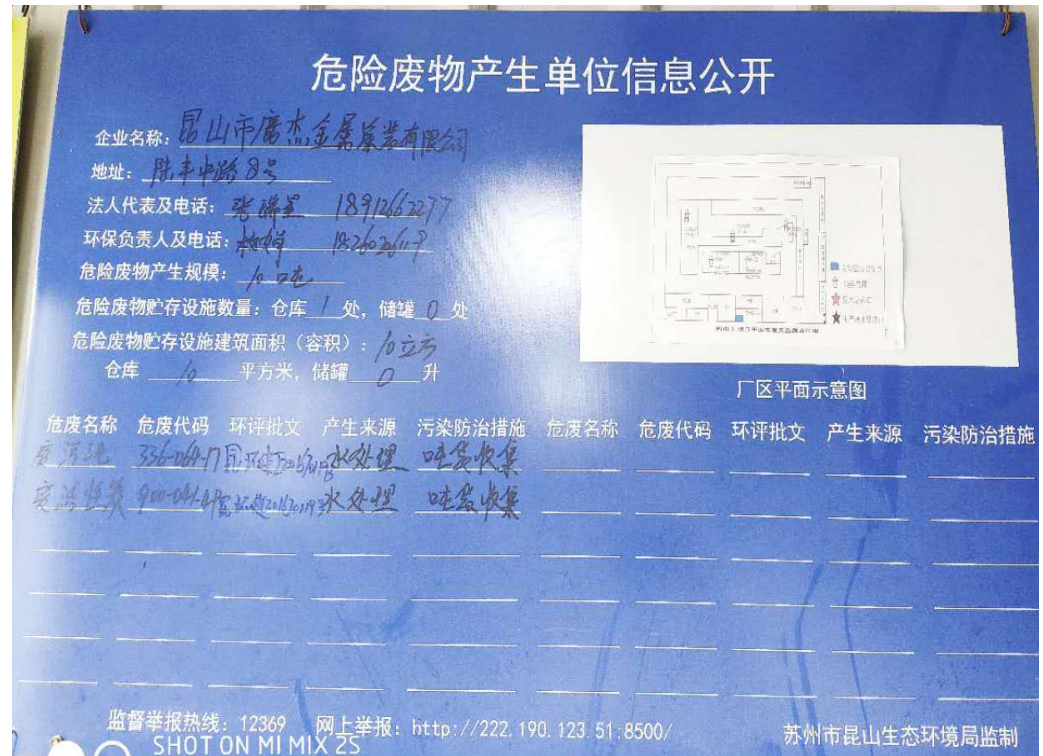 危险废物产生单位信息公开
企业名称：昆山市广杰金属漆装有限公司
地址：陆丰中路8号
法人代表及电话：张 18912662277
环保负责人及电话：
危险废物产生规模：10吨
危险废物贮存设施数量：仓库 1 处，储罐 0 处
危险废物贮存设施建筑面积（容积）：10立方
仓库 10 平方米，储罐 0 升
厂区平面示意图
危废名称 危废代码 环评批文 产生来源 污染防治措施 危废名称 危废代码 环评批文 产生来源 污染防治措施
废污泥 336-064-17 水处理 吨袋收集
废活性炭 900-041-49 水处理 吨袋收集
监督举报热线：12369 网上举报：http://222.190.123.51:8500/
苏州市昆山生态环境局监制
SHOT ON MI MIX 2S